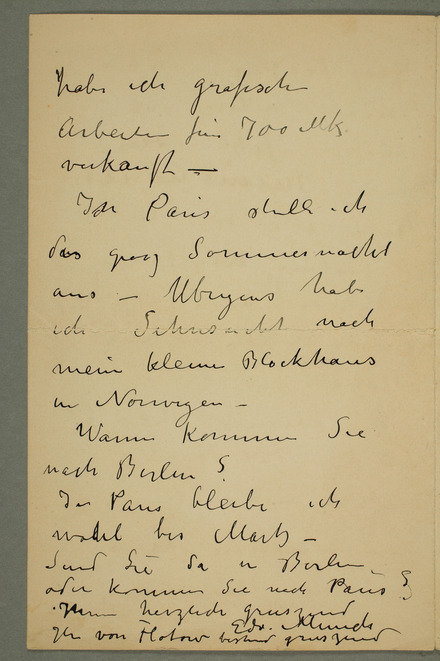 habe ich grafische
Arbeiten für 700 Mk.
verkauft —
In Paris stelle ich
das gros Sommernacht
aus — Ubrigens habe
ich Sehnsucht nach
mein kleine Blockhaus
in Norwegen —
Wann kommen Sie
nach Berlin?
In Paris bleibe ich
wohl bis Marts —
Sind Sie da in Berlin
oder kommen Sie nach Paris?
Ihnen herzlich grussend
Edv. Munch
von Flotow bestens grussend